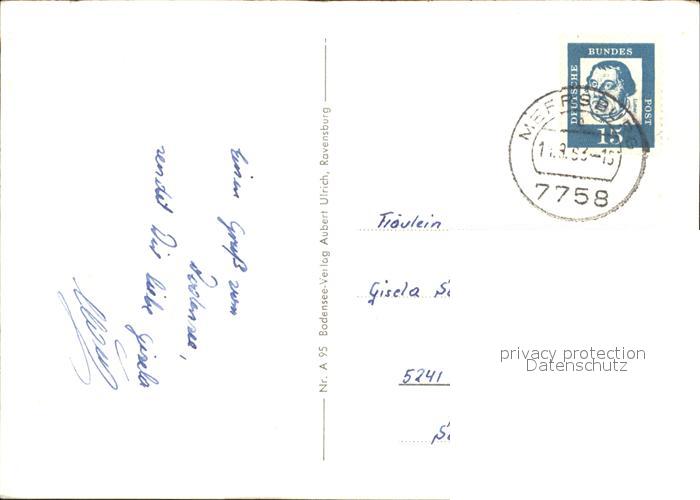 Einen Gruß vom
Bodensee,
sendet Dir liebe Gisela
Nr. A 95 Bodensee-Verlag Aubert Ulrich, Ravensburg
DEUTSCHE
BUNDES
POST
15
MEERSBURG
7758
Fräulein
Gisela
5241
privacy protection
Datenschutz